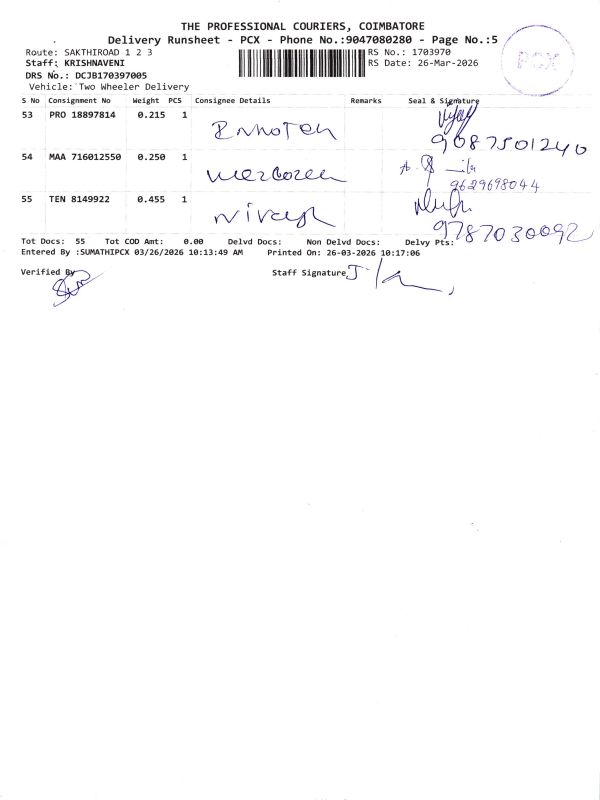 THE PROFESSIONAL COURIERS, COIMBATORE
Delivery Runsheet - PCX - Phone No.:9047080280 - Page No.:5
Route: SAKTHIROAD 1 2 3
RS No.: 1703970
Staff: KRISHNAVENI
RS Date: 26-Mar-2026
DRS No.: DCJB170397005
Vehicle: Two Wheeler Delivery
PCX
S No Consignment No Weight PCS Consignee Details Remarks Seal & Signature
53 PRO 18897814 0.215 1
9087501240
54 MAA 716012550 0.250 1
9629698044
55 TEN 8149922 0.455 1
9787030092
Tot Docs: 55 Tot COD Amt: 0.00 Delvd Docs: Non Delvd Docs: Delvy Pts:
Entered By :SUMATHIPCX 03/26/2026 10:13:49 AM Printed On: 26-03-2026 10:17:06
Verified By Staff Signature